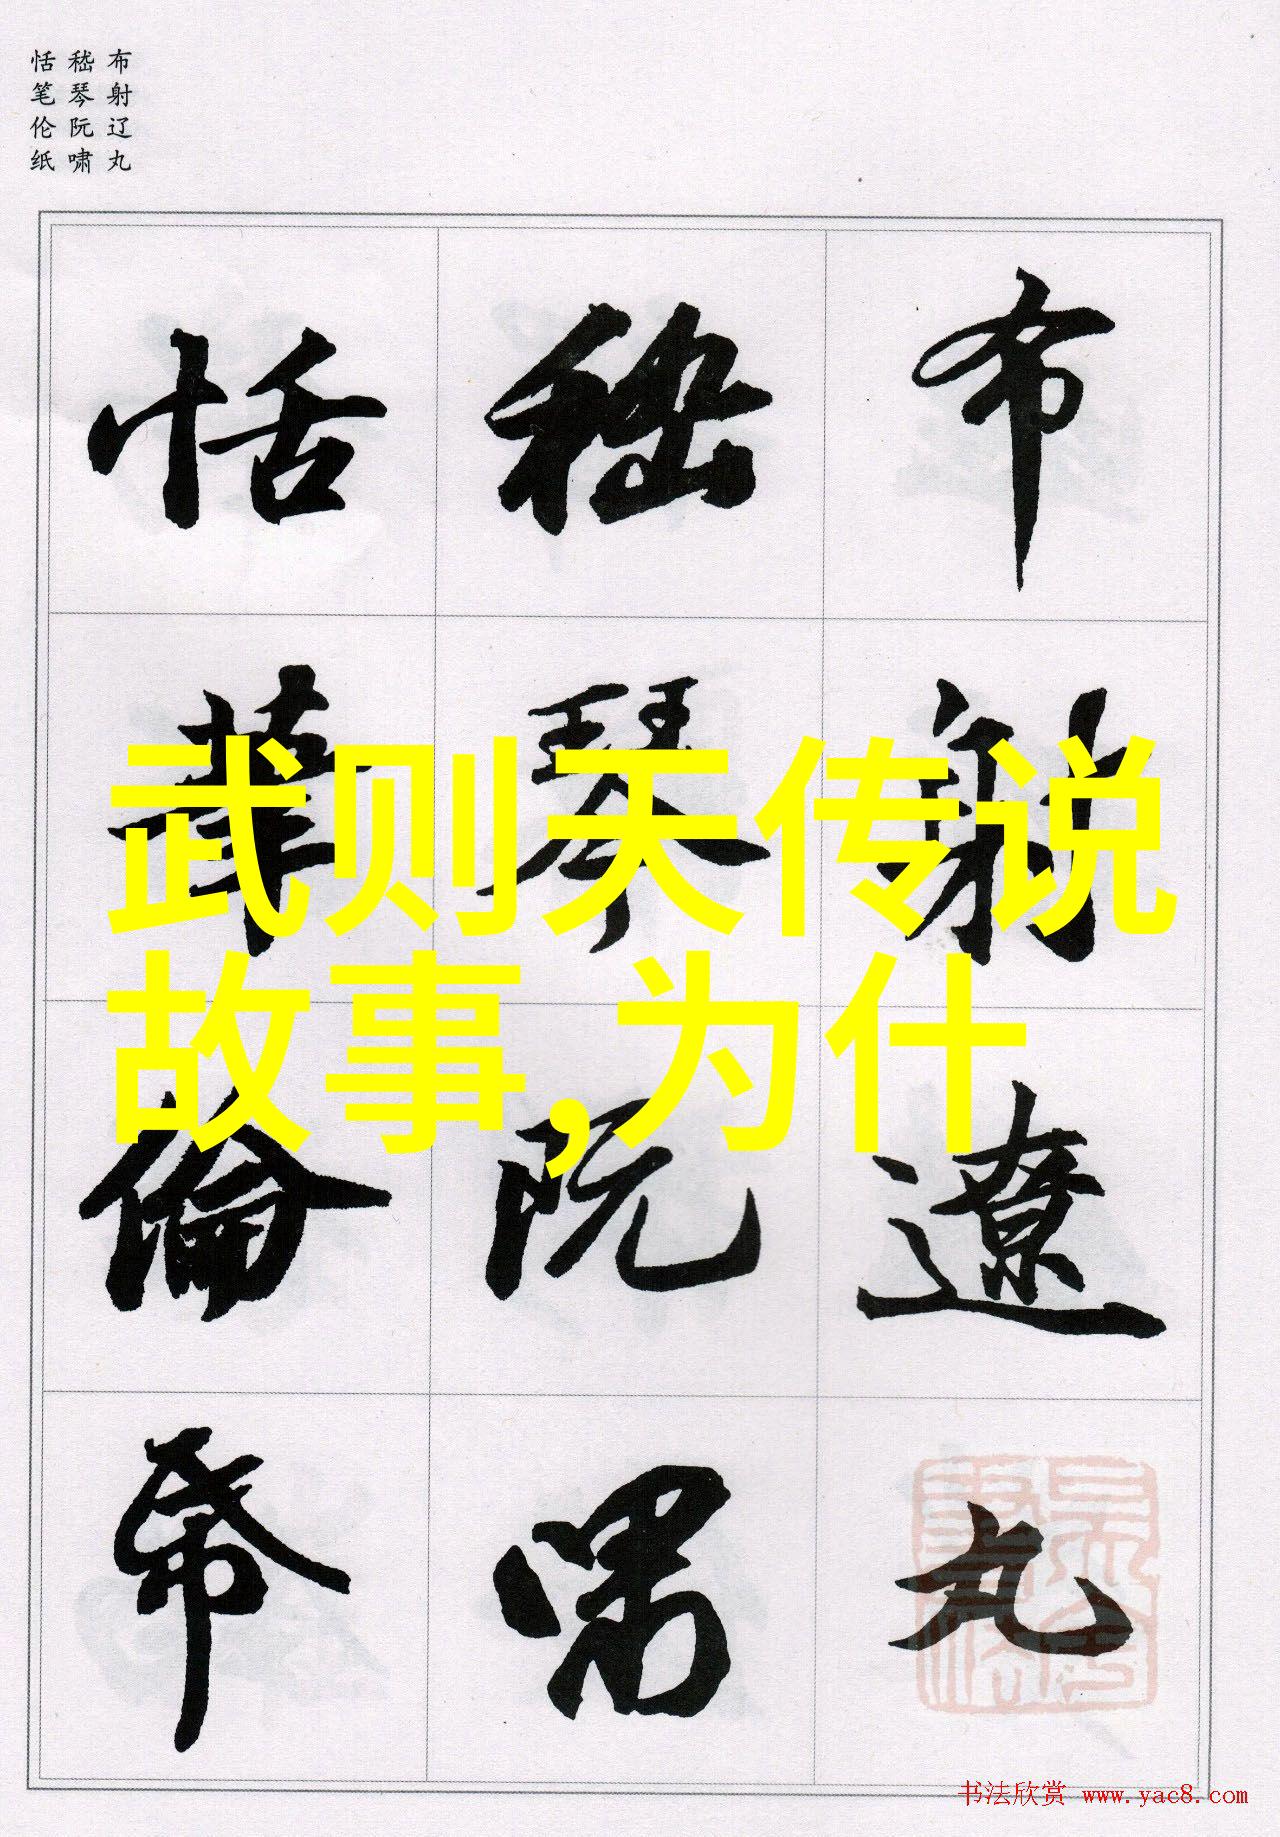 布射辽丸
嵇琴阮啸
恬笔伦纸
布射遼丸
嵇琴阮嘯
恬筆倫帋
武则天传说
故事,为什
书法欣赏 www.yac8.com